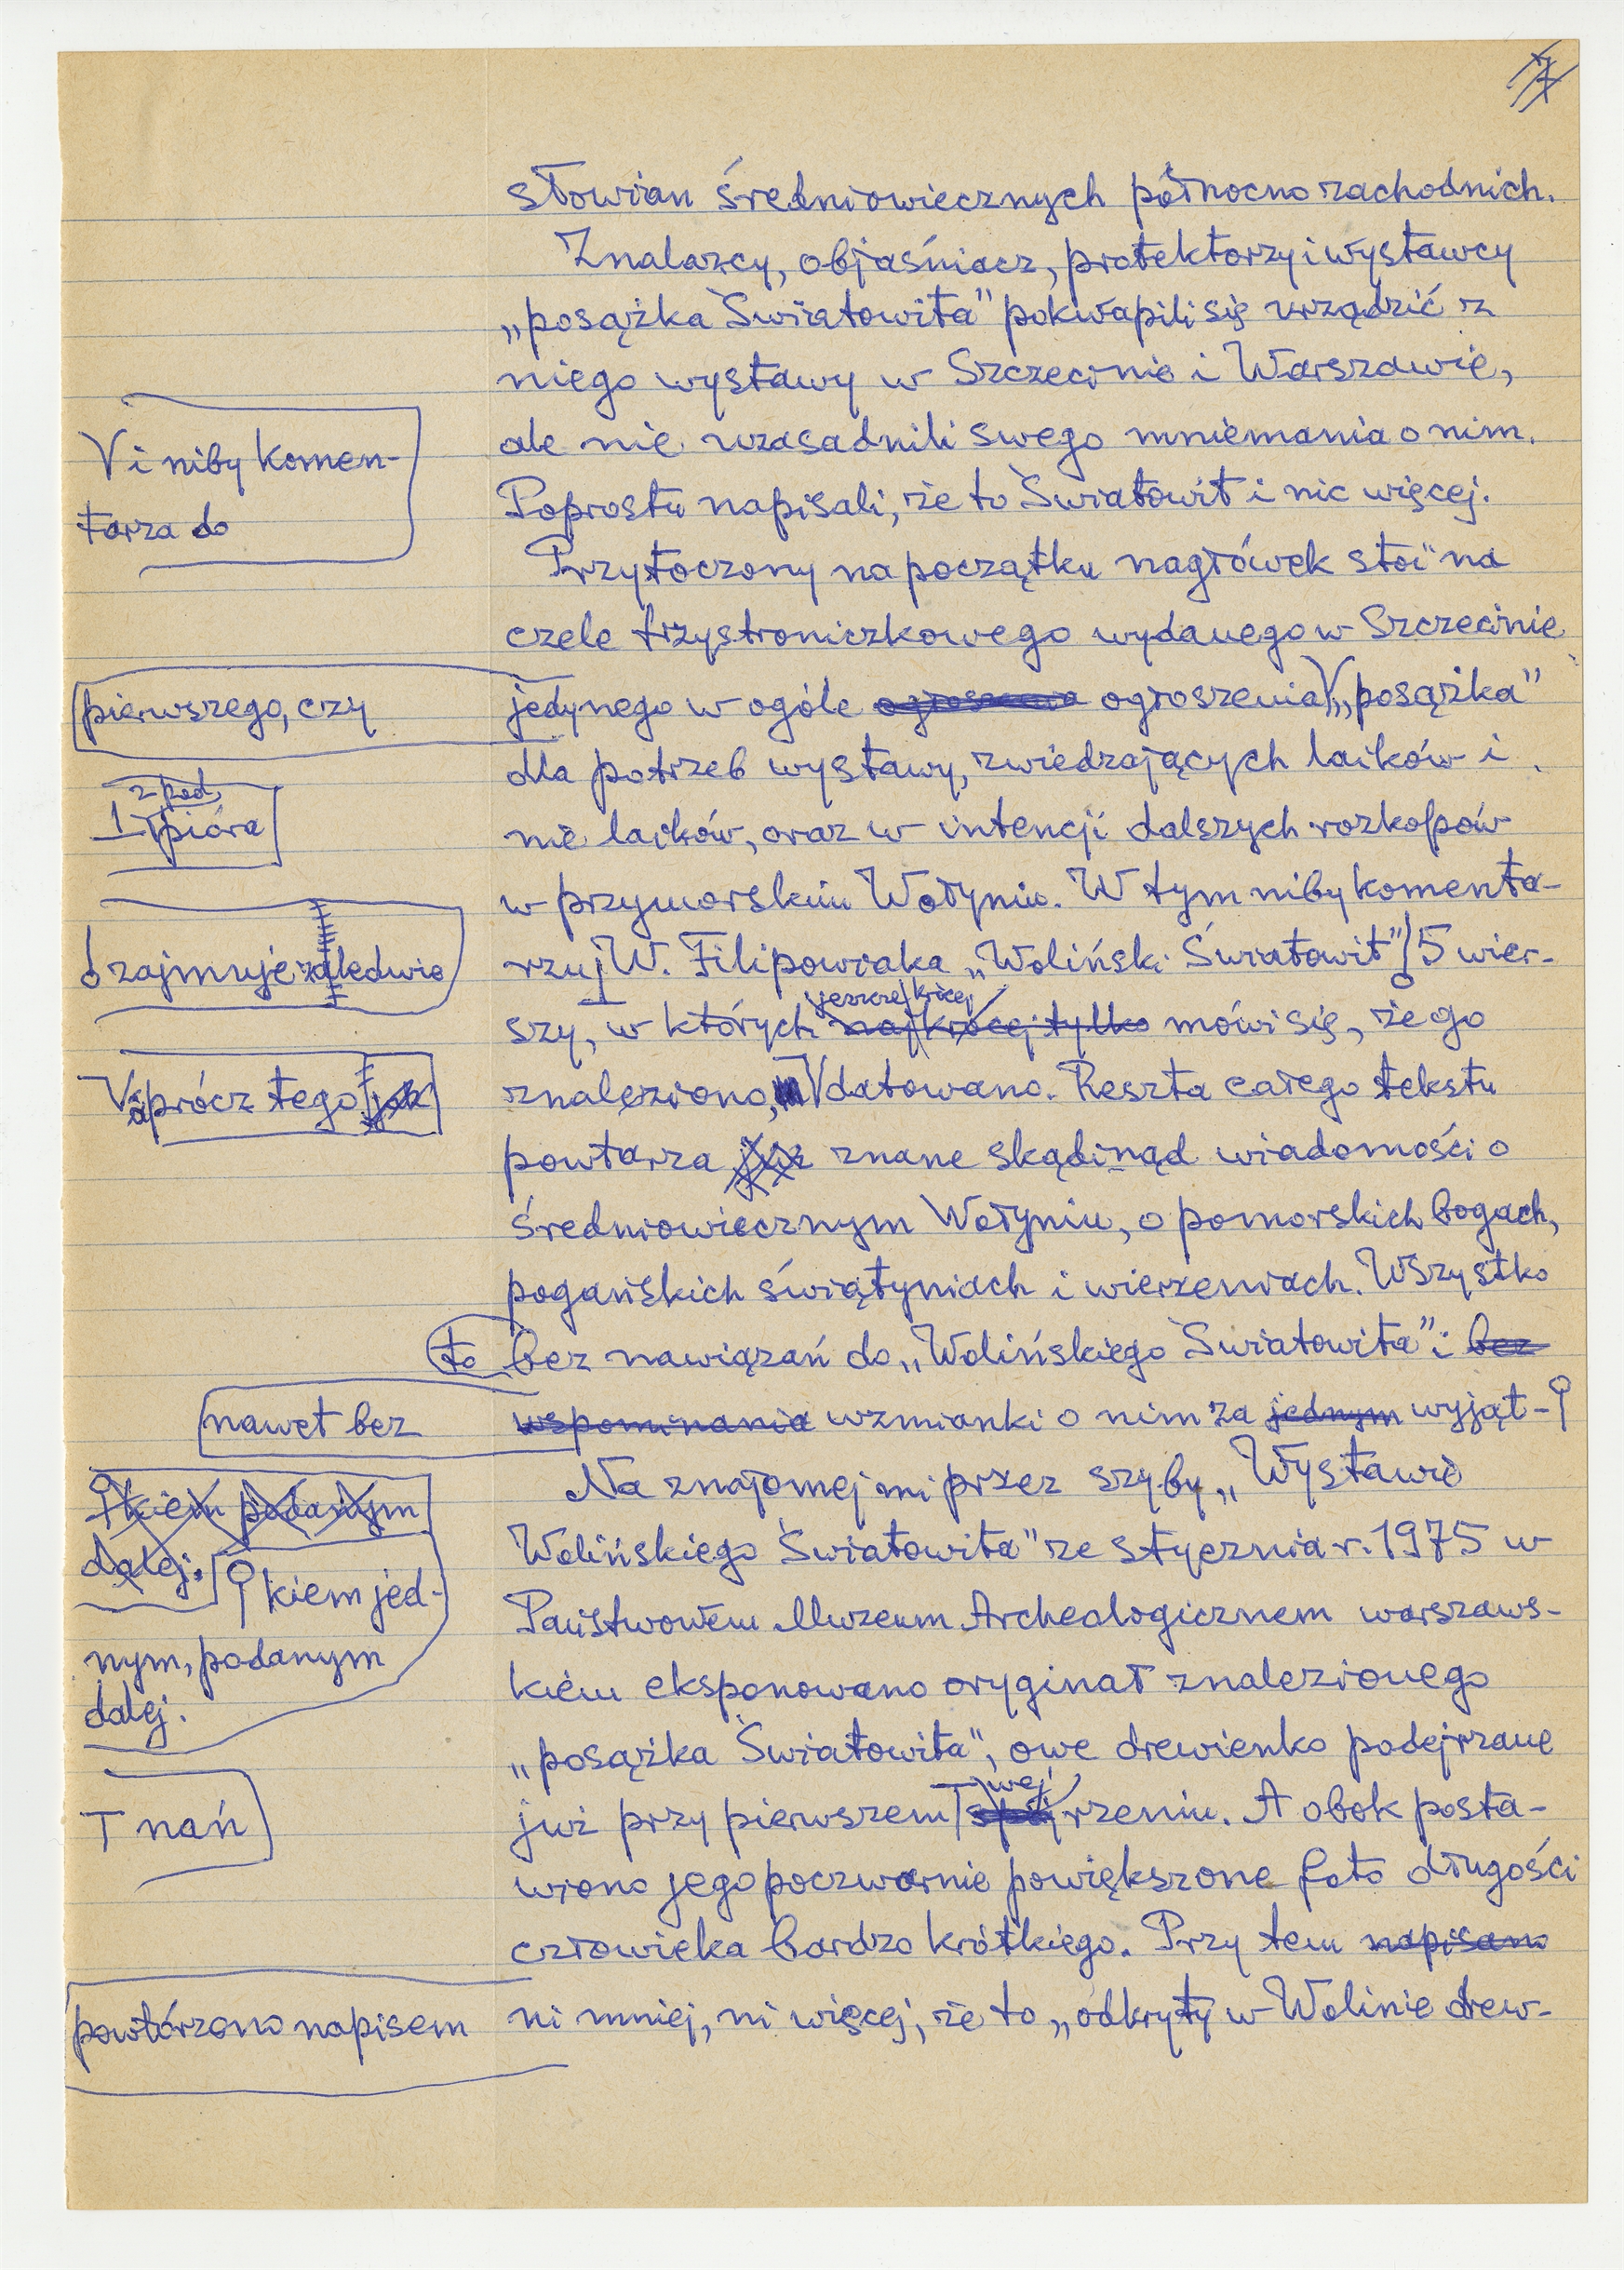 słowian średniowiecznych północno zachodnich.
Znalazcy, objaśniacz, protektorzy i wystawcy
„posążka Światowita” pokwapili się urządzić z
niego wystawy w Szczecinie i Warszawie,
ale nie uzasadnili swego mniemania o nim.
Poprostu napisali, że to Światowit i nic więcej.
Przytoczony na początku nagłówek stoi na
czele trzystroniczkowego wydanego w Szczecinie
pierwszego, czy
jedynego w ogóle ogłoszenia V „posążka”
V i niby komen-
tarza do
dla potrzeb wystawy, zwiedzających laików i
nie laików, oraz w intencji dalszych rozkopów
w przymorskiem Wołyniu. W tym niby komenta-
rzu W. Filipowiaka „Woliński Światowit” 5 wier-
z pod
pióra
zajmuje zaledwie
szy, w których jeszcze krócej mówi się, że go
najkrócej tylko
znaleziono, V datowano. Reszta całego tekstu
V oprócz tego jak
powtarza już znane skądinąd wiadomości o
średniowiecznym Wołyniu, o pomorskich bogach,
pogańskich świątyniach i wierzeniach. Wszystko
to bez nawiązań do „Wolińskiego Światowita” i bez
nawet bez
wspominania wzmianki o nim za jednym wyjąt-
kiem podanym
dalej.
kiem jed-
nym, podanym
dalej.
Na znajomej mi przez szyby „Wystawie
Wolińskiego Światowita” ze stycznia r. 1975 w
Państwowem Muzeum Archeologicznem warszaws-
kiem eksponowano oryginał znalezionego
„posążka Światowita”, owe drewienko podejrzane
już przy pierwszem T wejrzeniu. A obok posta-
T nań
wiono jego poczwarnie powiększone foto długości
człowieka bardzo krótkiego. Przy tem napisano
powtórzono napisem
ni mniej, ni więcej, że to „odkryty w Wolinie drew-